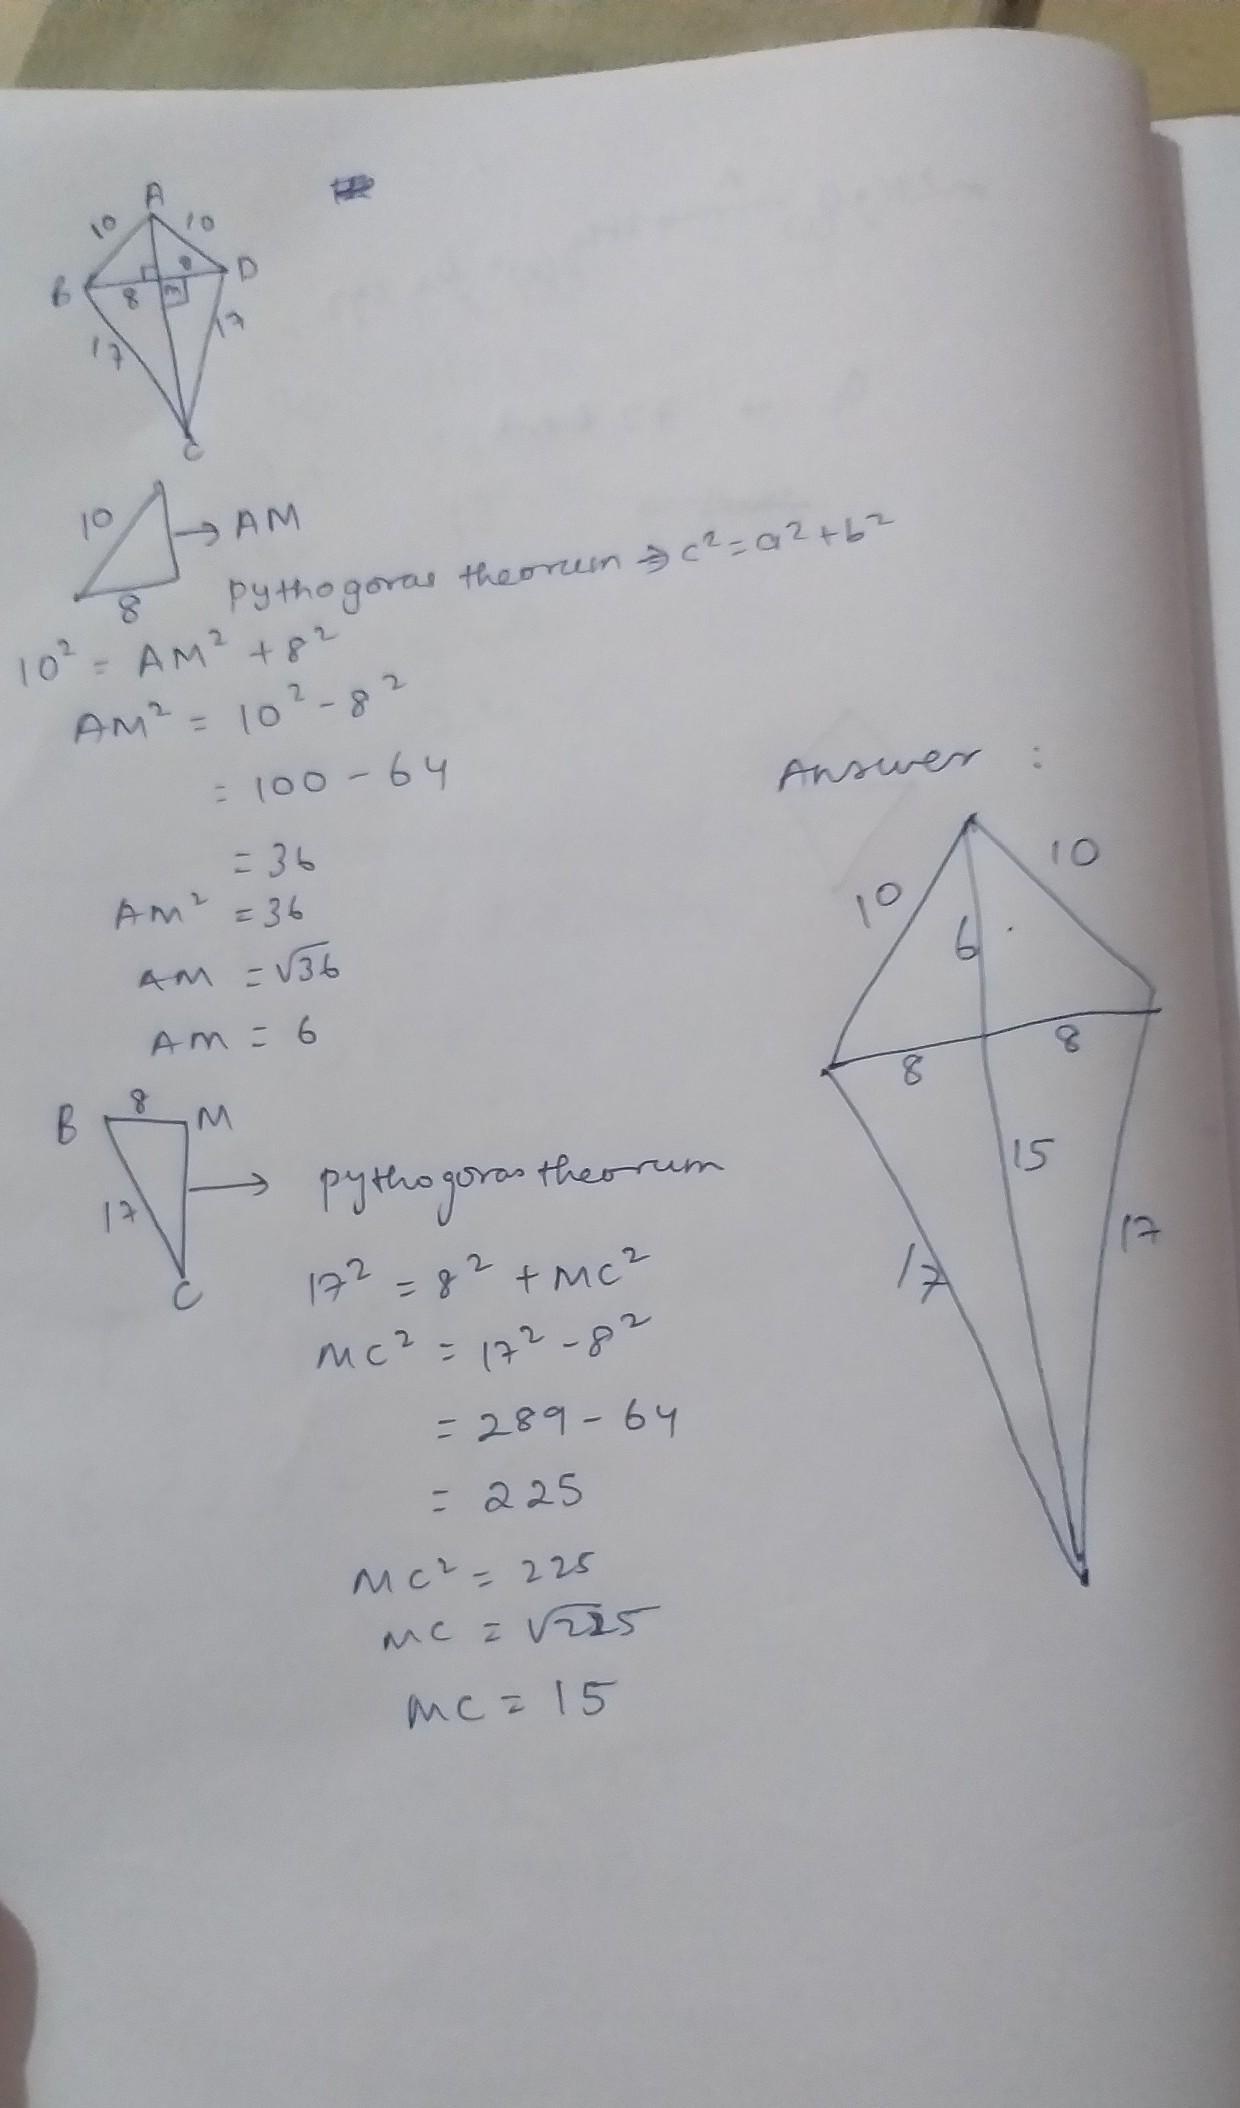 A
10 10
B 8 D
8 m
17 17
C
10 → AM
8
pythogoras theorum ⇒ c² = a² + b²
10² = AM² + 8²
AM² = 10² - 8²
= 100 - 64
= 36
AM² = 36
AM = √36
AM = 6
8
B M
17 → pythogoras theorum
C
17² = 8² + MC²
MC² = 17² - 8²
= 289 - 64
= 225
MC² = 225
MC = √225
MC = 15
Answer :
10 10
6
8 8
15
17 17